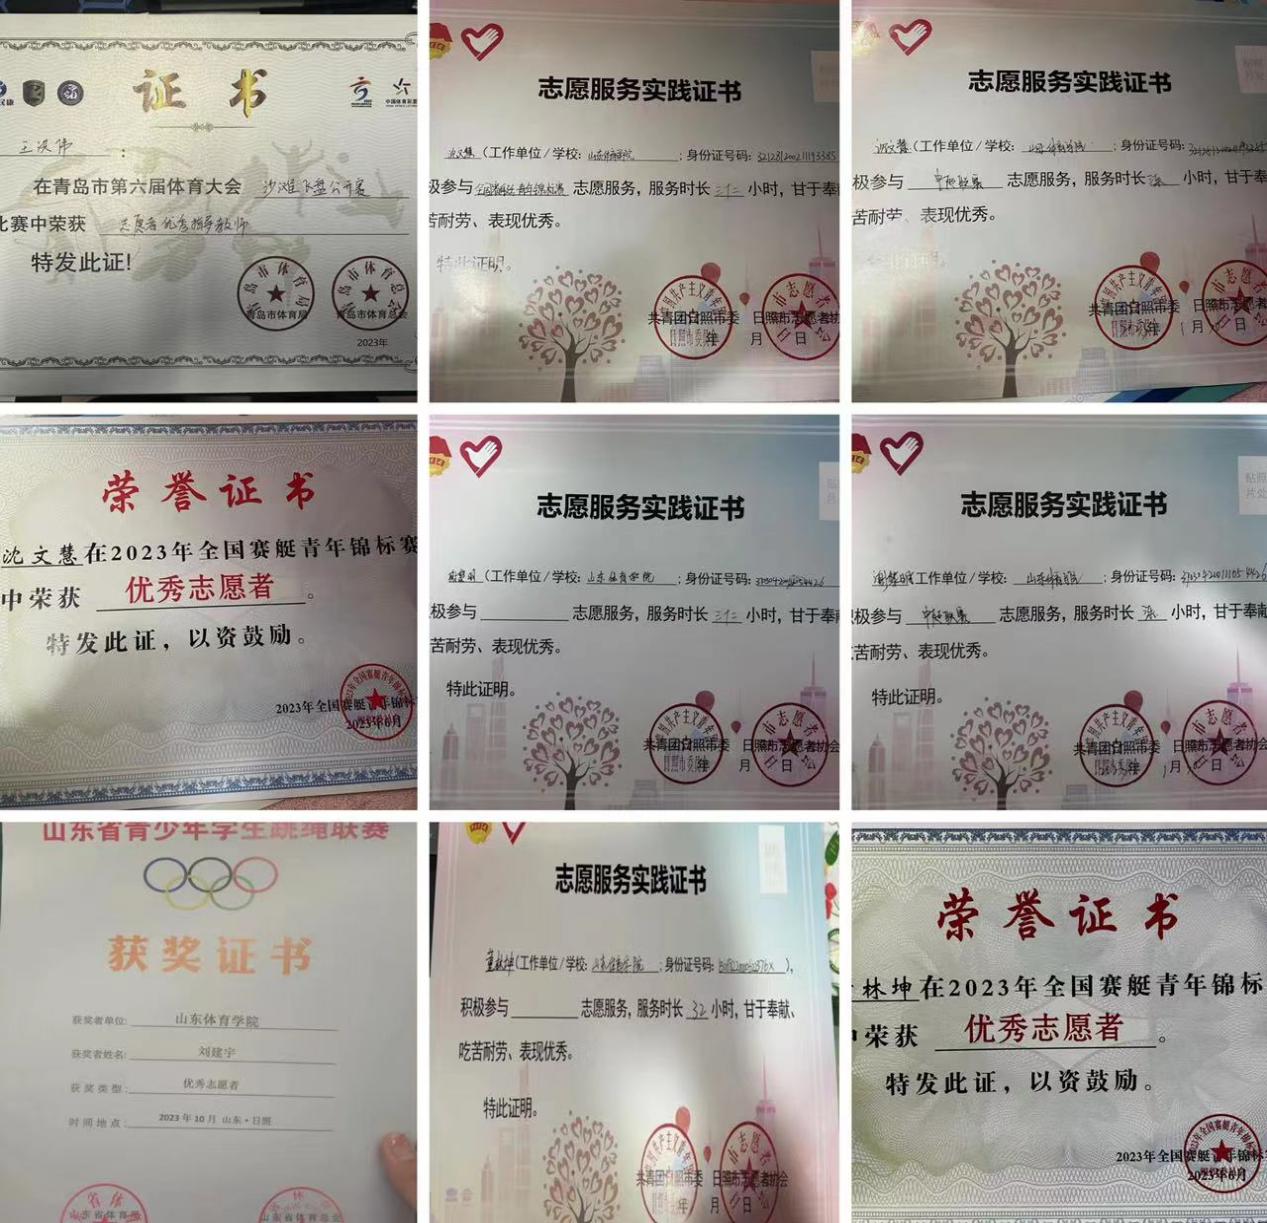 证 书
王汉伟 :
在青岛市第六届体育大会 沙滩飞盘公开赛
比赛中荣获 志愿者优秀指导教师
特发此证!
青岛市体育局
青岛市体育总会
2023年
志愿服务实践证书
沈文慧(工作单位/学校: 山东体育学院 ;身份证号码:
极参与 全国赛艇青年锦标赛 志愿服务,服务时长 三十二 小时,甘于奉
苦耐劳、表现优秀。
特此证明。
共青团日照市委 日照市志愿者协
年 月 日
志愿服务实践证书
沈文慧(工作单位/学校: 山东体育学院 ;身份证号码:
极参与 志愿服务,服务时长 小时,甘于奉
苦耐劳、表现优秀。
共青团日照市委 日照市志愿者协
年 1 月 日
荣誉证书
沈文慧在2023年全国赛艇青年锦标赛
中荣获 优秀志愿者 。
特发此证,以资鼓励。
2023年全国赛艇青年锦标
2023年6月
志愿服务实践证书
(工作单位/学校: 山东体育学院 ;身份证号码:
极参与 志愿服务,服务时长 三十二 小时,甘于奉
苦耐劳、表现优秀。
特此证明。
共青团日照市委 日照市志愿者协会
年 月 日
志愿服务实践证书
工作单位/学校: 山东体育学院 ;身份证号码:
积极参与 志愿服务,服务时长 小时,甘于奉
苦耐劳、表现优秀。
特此证明。
共青团日照市委 日照市志愿者协会
年 1 月 日
山东省青少年学生跳绳联赛
获奖证书
获奖者单位: 山东体育学院
获奖者姓名: 刘建宇
获奖类型: 优秀志愿者
时间地点: 2023年10月 山东·日照
志愿服务实践证书
董林坤(工作单位/学校: 山东体育学院 ;身份证号码: ),
积极参与 志愿服务,服务时长 32 小时,甘于奉献、
吃苦耐劳、表现优秀。
特此证明。
共青团日照市委 日照市志愿者协会
年 月 日
荣誉证书
林坤在2023年全国赛艇青年锦标
中荣获 优秀志愿者 。
特发此证,以资鼓励。
2023年全国赛艇青年锦标
2023年6月